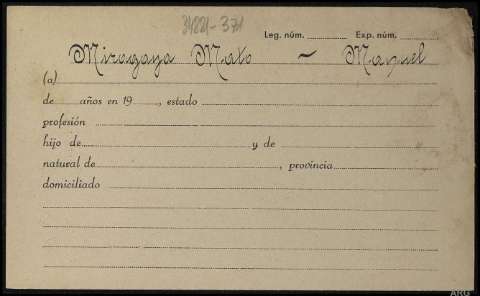 Leg. núm. Exp. núm.
Miragaya Mato ~ Manuel
(a)
de años en 19 , estado
profesión
hijo de y de
natural de , provincia
domiciliado
ARG